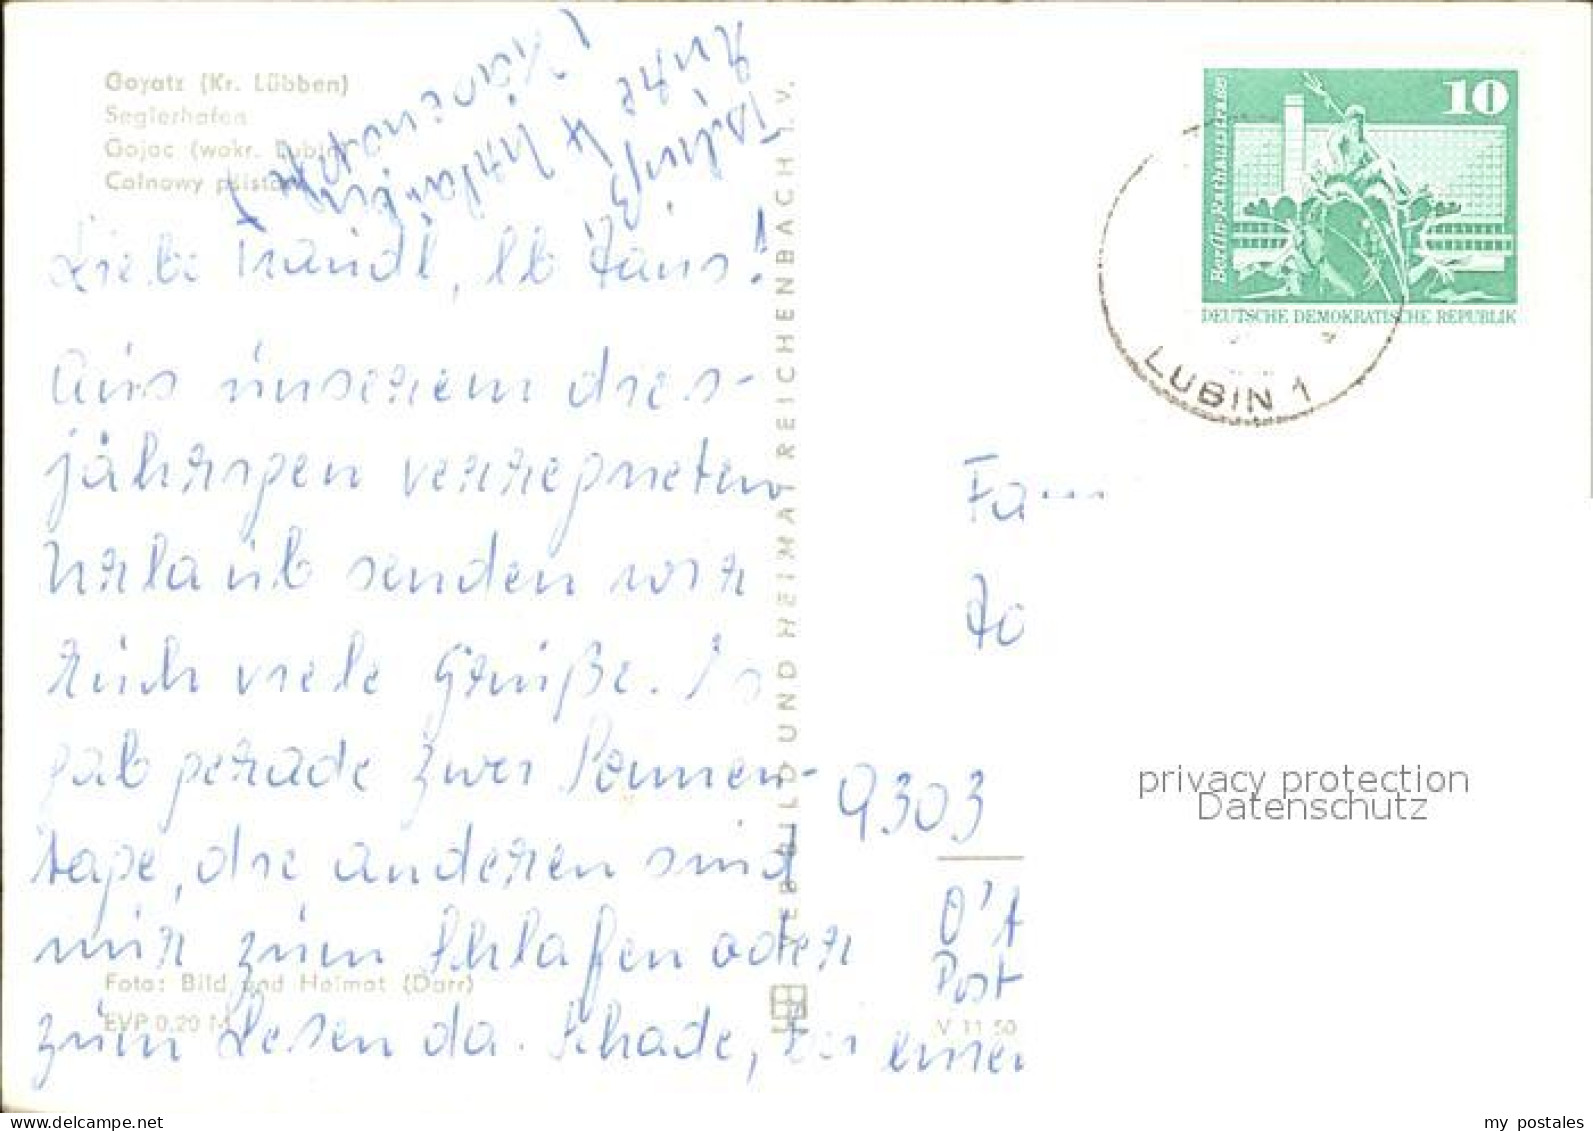 Goyatz (Kr. Lübben)
Seglerhafen
Gojac (wokr. Lubin)
Cołnowy pśistaw
Liebe Traudl, lb Hans!
Aus unserem dies-
jährigen verregneten
Urlaub senden wir
Euch viele Grüße. Es
gab gerade zwei Sonnen-
tage, die anderen sind
nur zum Schlafen oder
zum Lesen da. Schade, bei einer
Foto: Bild und Heimat (Darr)
EVP 0,20 M
VEB BILD UND HEIMAT REICHENBACH I. V.
V 11 50
10
Berlin, Rathausstraße
DEUTSCHE DEMOKRATISCHE REPUBLIK
LUBIN 1
Fam
9303
Post
privacy protection
Datenschutz
my postales